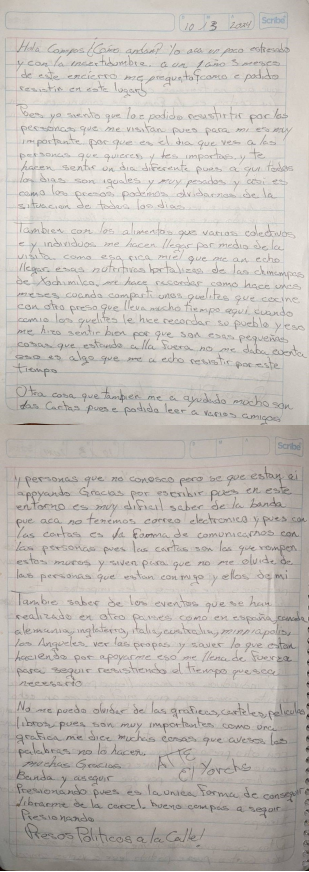 10 3 2024 Scribe
Hola Compas! Cómo andan? Yo aca un poco estresado
y con la insertidumbre a un 1 año 3 meses
de este encierro me pregunto como e podido
resistir en este lugar
Pues yo siento que lo e podido resistir por las
personas que me visitan pues para mi es muy
importante por que es el dia que ves a las
personas que quieres y les importas y te
hacen sentir un dia diferente pues a qui todos
los dias son iguales y muy pesados y asi es
como los presos podemos olvidarnos de la
situacion de todos los dias.
Tambien con los alimentos que varios colectivos
e y individuos me hacen llegar por medio de la
visita como esa rica miel que me an echo
llegar esas nutritivas hortalizas de las chinampas
de Xochimilco, me hace recordar como hace unos
meses cuando comparti unos quelites que cocine
con otro preso que lleva mucho tiempo aqui cuando
comio los quelites le hice recordar su pueblo y eso
me hizo sentir bien por que son esas pequeñas
cosas que estando alla fuera no me daba cuenta
cosa es algo que me a echo resistir por este
tiempo
Otra cosa que tambien me a ayudado mucho son
las cartas pues e podido leer a varios amigos
Scribe
y personas que no conosco pero se que estan ai
apoyando Gracias por escribir pues en este
entorno es muy dificil saber de la banda
pue aca no tenemos correo electronico y pues con
las cartas es la forma de comunicarnos con
las personas pues las cartas son las que rompen
estos muros y siven para que no me olvide de
las personas que estan conmigo y ellos de mi
Tambie saber de los eventos que se han
realizado en otro paises como en españa, canada
alemania, inglaterra, italia, australia, minneapolis,
los Angeles, ver las propas y saver lo que estan
haciendo por apoyarme eso me llena de fuerza
para seguir resistiendo el tiempo que sea
necesario
No me puedo olvidar de las graficas, carteles, peliculas
libros, pues son muy importantes como una
grafica me dice muchas cosas que aveses las
palabras no lo hacen.
muchas Gracias ATE
Banda y aseguir El Yorch
Presionando pues es la unica forma de conseguir
librarme de la carcel bueno compas a seguir
Presionando
Presos Politicos a la Calle!